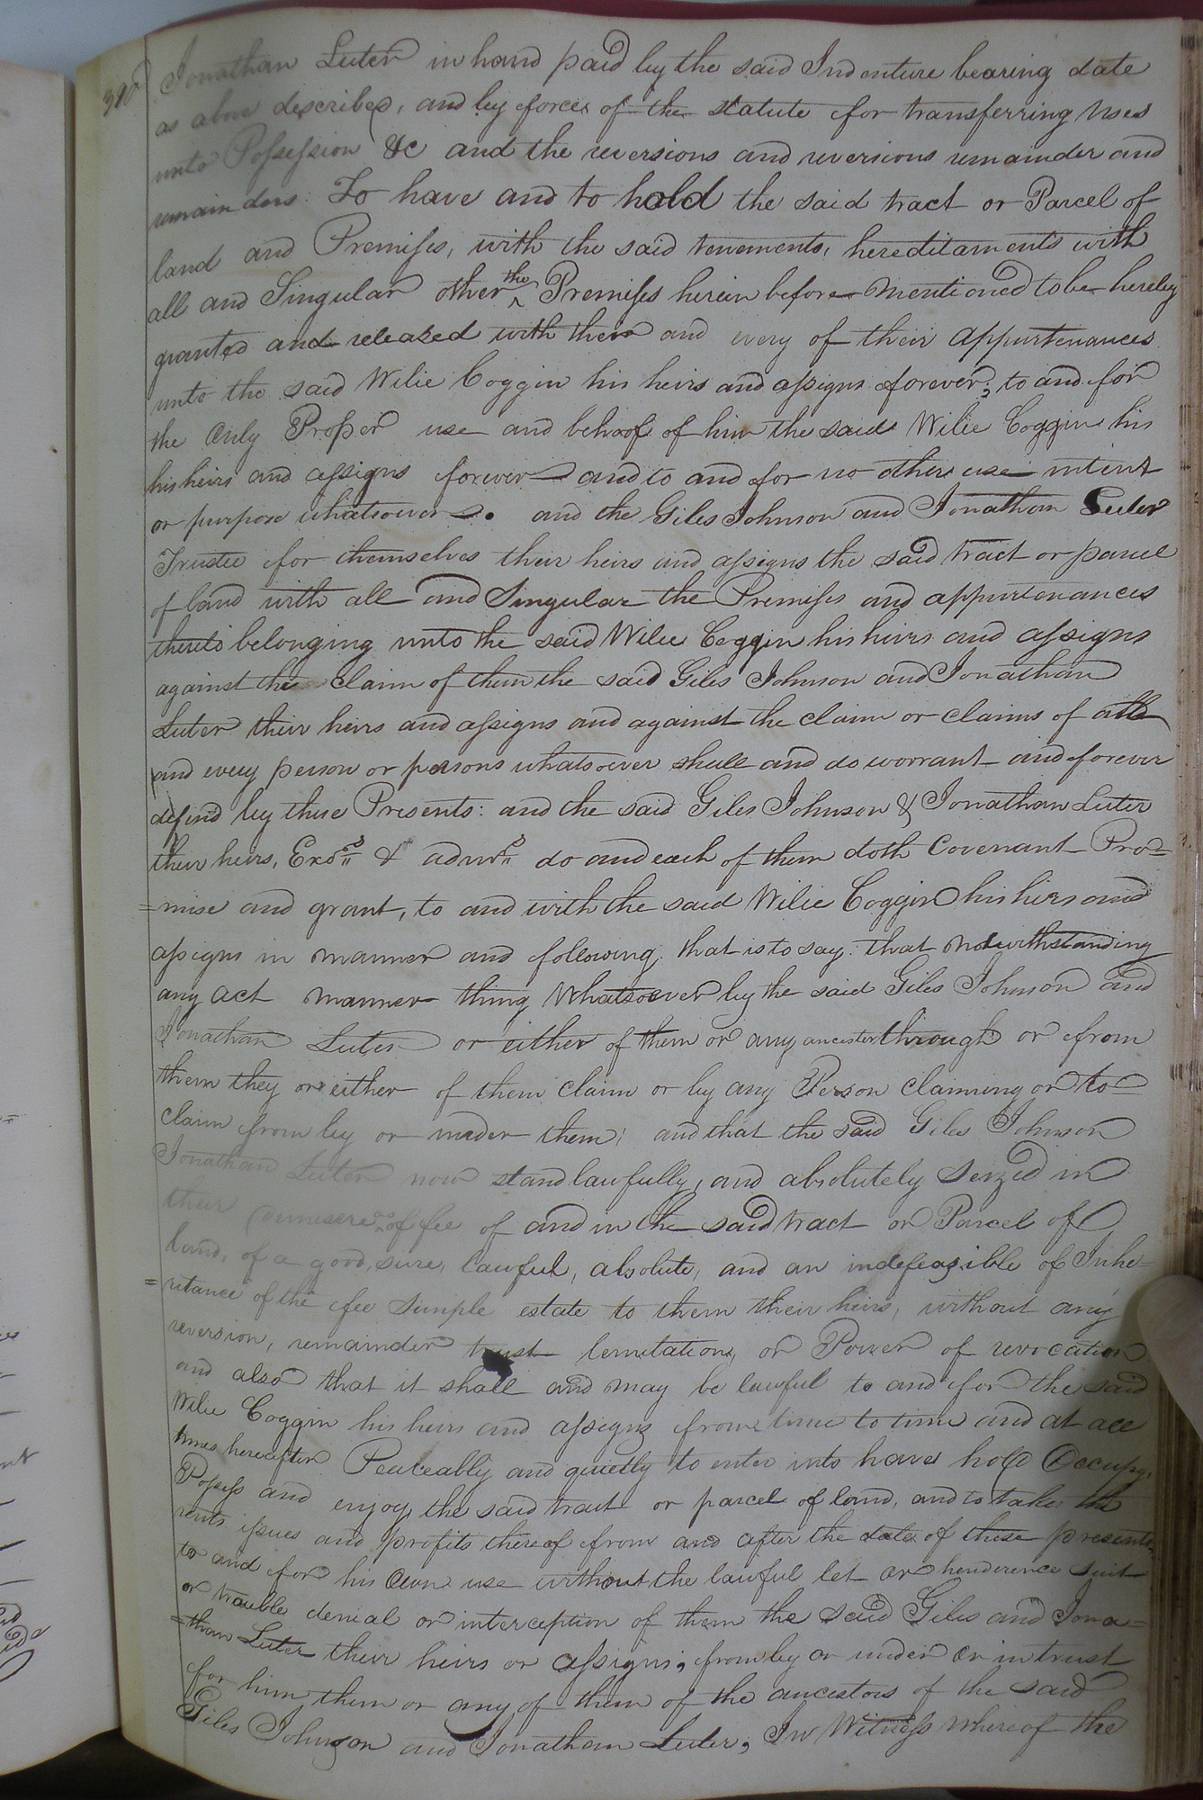 Jonathan Luter in hand paid by the said Indenture bearing date
as above described, and by force of the statute for transferring uses
unto Possession &c and the reversions and reversions remainder and
remainders To have and to hold the said tract or Parcel of
land and Premises, with the said tenements, hereditaments with
all and Singular other the Premises herein before mentioned to be hereby
granted and released with their and every of their appurtenances
unto the said Wilie Coggin his heirs and assigns forever; to and for
the Only Proper use and behoof of him the said Wilie Coggin his
his heirs and assigns forever and to and for no other use intent
or purpose whatsoever. and the Giles Johnson and Jonathan Luter
Trustee for themselves their heirs and assigns the said tract or parcel
of land with all and Singular the Premises and appurtenances
thereto belonging unto the said Wilie Coggin his heirs and assigns
against the claim of them the said Giles Johnson and Jonathan
Luter their heirs and assigns and against the claim or claims of all
and every person or persons whatsoever shall and do warrant and forever
defend by these Presents: and the said Giles Johnson & Jonathan Luter
their heirs, Exors & admrs do and each of them doth Covenant Pro=
=mise and grant, to and with the said Wilie Coggin his hiers and
assigns in manner and following. that is to say: that notwithstanding
any act manner thing Whatsoever by the said Giles Johnson and
Jonathan Luter or either of them or any ancester through or from
them they or either of them claim or by any Person claiming or to
claim from by or under them; and that the said Giles Johnson
Jonathan Luter now stand lawfully, and absolutely Seized in
their of fee of and in the said tract or Parcel of
land, of a good, sure, lawful, absolute, and an indefeasible of Inhe
=ritance of the fee Simple estate to them their heirs, without any
reversion, remainder trust lemitation, or Power of revocation
and also that it shall and may be lawful to and for the said
Wilie Coggin his heirs and assigns from time to time and at all
times hereafter Peaceably and quietly to enter into have hold Occupy,
Possess and enjoy the said tract or parcel of land, and to take the
rents issues and profits thereof from and after the date of these presents
to and for his Own use without the lawful let or henderence suit
or trauble denial or interception of them the said Giles and Jona=
=than Luter their heirs or assigns, from by or under or in trust
for him them or any of them of the ancestors of the said
Giles Johnson and Jonathan Luter, In Witness whereof the